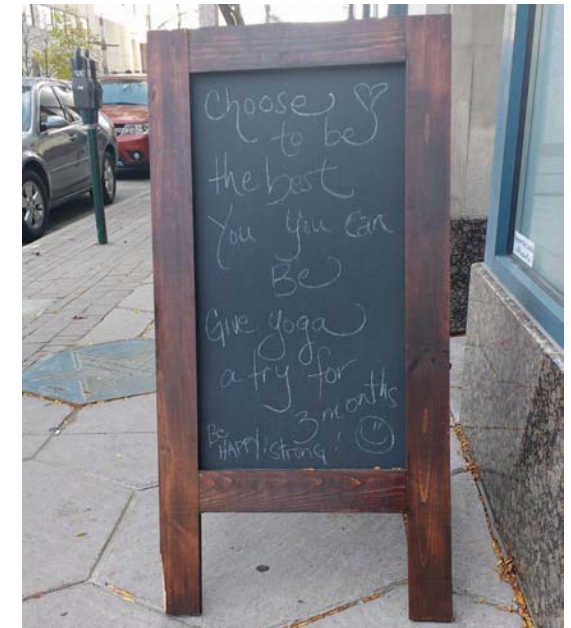 Choose
to be
the best
You you can
Be
Give yoga
a try for
3 months
Be
HAPPY; strong!